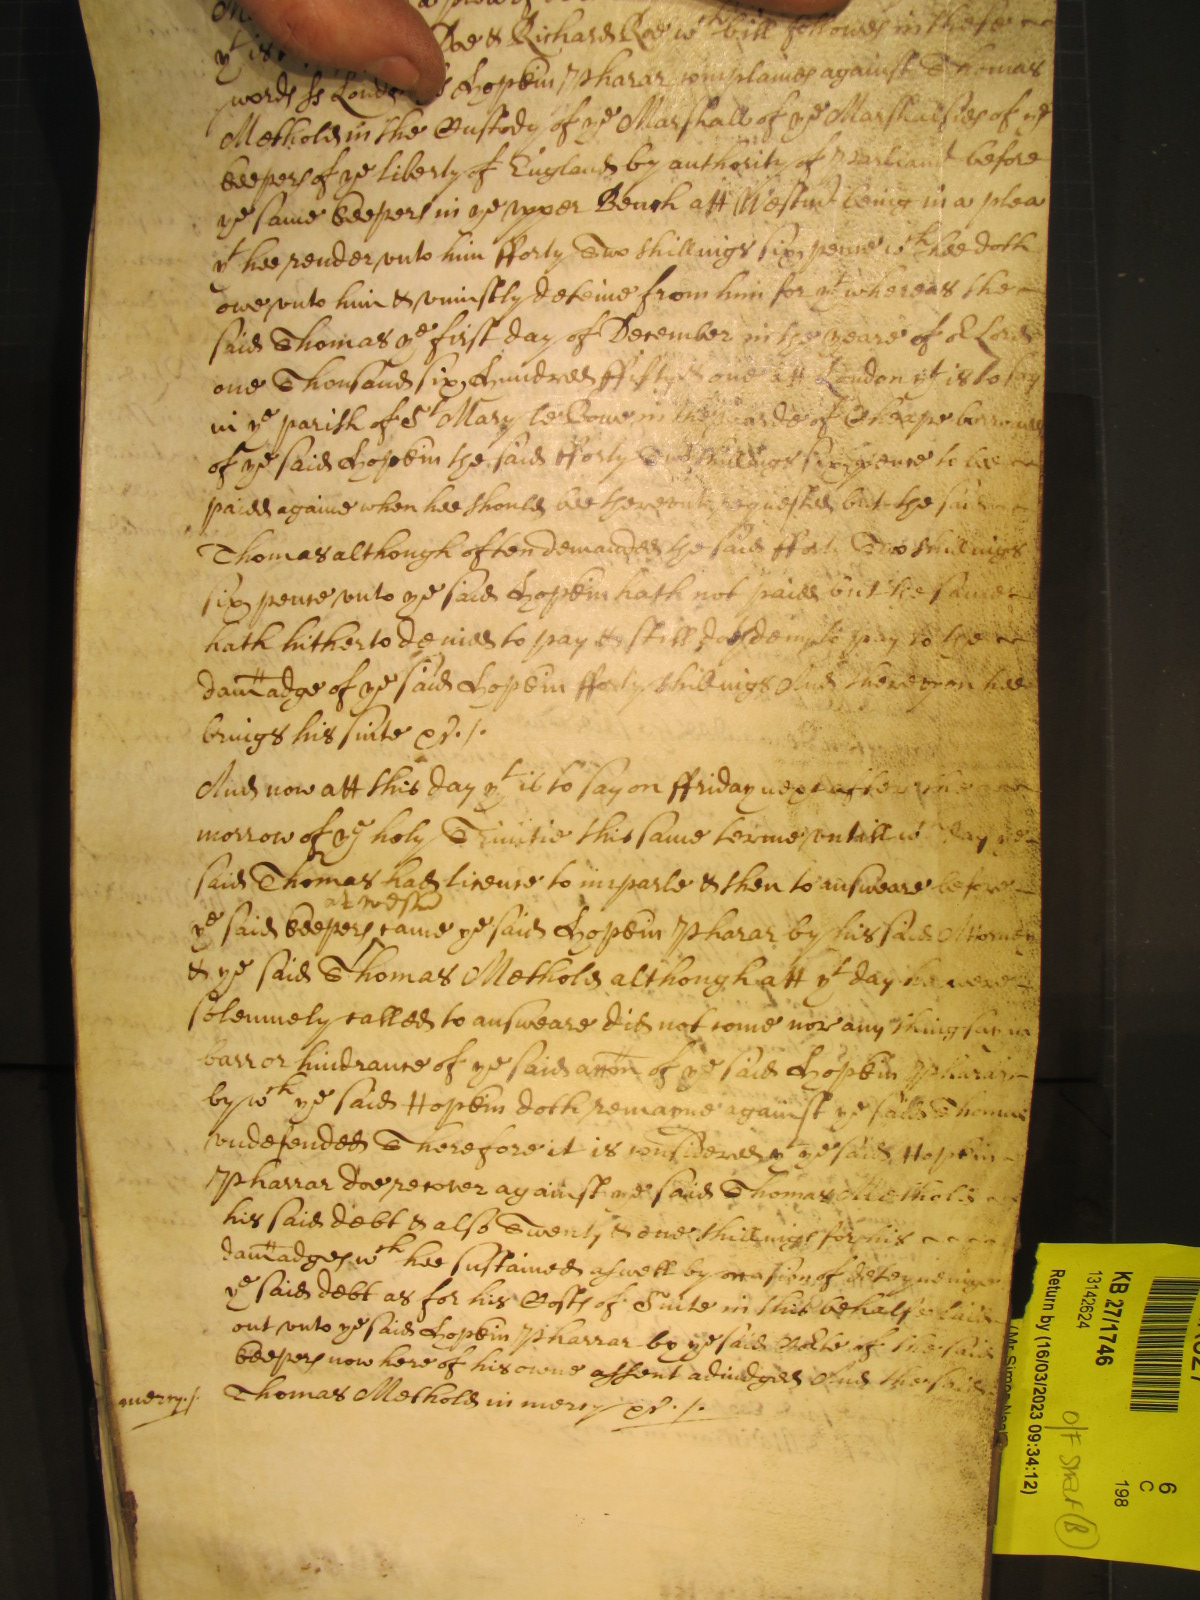 yt is Doe & Richard Roe wch bill followes in these
words ss London ss Hopkin Pharar complaines against Thomas
Methold in the Custody of ye Marshall of ye Marshalsies of ye
keepers of ye liberty of England by authority of Parliamt before
ye same keepers in ye upper Bench att Westmr being in a plea
yt hee render unto him fforty Two shillings six pence wch hee doth
owe unto him & uniustly deteine from him for yt whereas the
said Thomas ye first day of December in the yeare of or Lord
one Thousand six hundred ffifty & one att London yt is to say
in ye parish of St Mary le Bowe in the warde of Cheape borrowed
of ye said Hopkin the said fforty Two shillings six pence to be
paied againe when hee should bee thereunto requested but the said
Thomas although often demanded the said fforty Two shillings
six pence unto ye said Hopkin hath not paied but the same
hath hitherto denied to pay & still doth deny to pay to the
damadge of ye said Hopkin fforty shillings And thereupon hee
brings his suite &c ./.
And now att this day yt is to say on ffriday next after the
morrow of ye holy Trinitie this same terme untill wch day ye
said Thomas had licence to imparle & then to answeare before
at Westmr
ye said keepers came ye said Hopkin Pharar by his said Attorney
& ye said Thomas Methold although att yt day hee were
solemnely called to answeare did not come nor any thing say in
barr or hindrance of ye said accon of ye said Hopkin Pharar
by wch ye said Hopkin doth remayne against ye said Thomas
undefended Therefore it is considered yt ye said Hopkin
Pharrar doe recover against ye said Thomas Methold
his said debt & also Twenty & one shillings for his
damadges wch hee sustained aswell by occasion of deteyneinge
ye said debt as for his Costs of Suite in this behalfe laid
out unto ye said Hopkin Pharrar by ye said Corte of the said
keepers now here of his owne assent adiudged And the said
merry ./. Thomas Methold in mercy &c ./.
KB 27/1746
13142624
Return by (16/03/2023 09:34:12)
6
C
198
O/F Shelf (B)